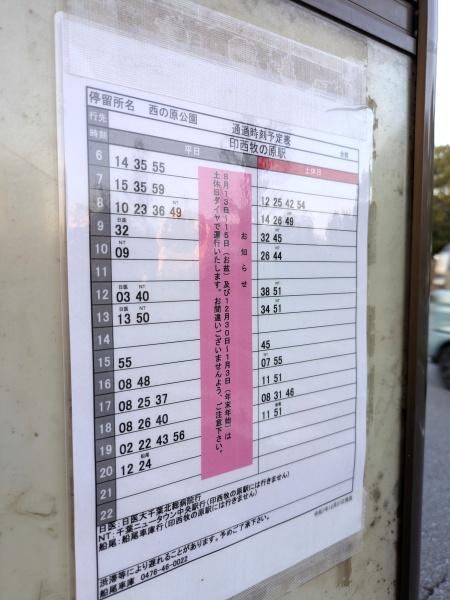 停留所名 西の原公園
通過時刻予定表
行先 印西牧の原駅
時刻 平日 土休日
6 14 35 55
7 15 35 59 12 25 42 54
NT NT
8 10 23 36 49 14 26 49
日医
9 32 32 45
NT
10 09 26 44
11
日医 NT
12 03 40 38 51
日医 NT
13 13 50 34 51
14
15 55 45
16 08 48 07 55
17 08 25 37 11 51
18 08 26 40 08 31 46
19 02 22 43 56 11 51
船尾
20 12 24
21
22
お知らせ
8月13日～15日（お盆）及び12月30日～1月3日（年末年始）は
土休日ダイヤで運行いたします。お間違いございませんよう、ご注意下さい。
日医：日医大千葉北総病院行
NT：千葉ニュータウン中央駅行（印西牧の原駅には行きません）
船尾：船尾車庫行（印西牧の原駅には行きません）
渋滞等により遅れることがあります。予めご了承下さい。
船尾車庫 0476-46-0022